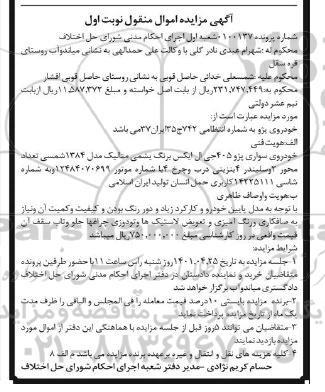 آگهی مزایده اموال منقول نوبت اول
شماره پرونده ۰۱۰۰۱۳۷ شعبه اول اجرای احکام مدنی شورای حل اختلاف
محکوم له: شهرام عبدی نادر گلی با وکالت علی حمدالهی به نشانی میاندوآب روستای
قره سقل
محکوم علیه: شمسعلی خدائی حاصل قوبی به نشانی روستای حاصل قوبی افشار
محکوم به: ۲۳۱,۷۴۷,۴۴۹ریال از بابت اصل خواسته و مبلغ ۱۱,۵۸۷,۳۷۲ریال ازبابت
نیم عشر دولتی
مورد مزایده عبارت است از:
خودروی پژو به شماره انتظامی ۷۴۲ج۳۵ایران۳۷می باشد
الف:هویت فنی
خودروی سواری پژو ۴۰۵جی ال ایکس برنگ یشمی متالیک مدل ۱۳۸۴شمسی تعداد
محور ۲وسیلندر ۴بنزینی درب وچرخ ۴با شماره موتور ۱۲۴۸۴۰۷۰۶۹۹وبه شماره
شاسی ۱۴۲۲۵۱۱۱کاربری حمل انسان تولید ایران اسلامی
ب:هویت واوصاف ظاهری
با توجه به مدل پایین خودرو و کارکرد زیاد و دور رنگ بودن و کیفیت وکمیت آن ونیاز
به صافکاری ورنگ آمیزی و تعویض لاستیک ها وتودوزی چراغها جلو وتاب سقف آن
قیمت واقعی در روز کارشناسی مبلغ ۷۵۰,۰۰۰,۰۰۰ریال میباشد
شرایط مزایده:
۱-جلسه مزایده به تاریخ ۱۴۰۱,۰۴,۲۵روز شنبه راس ساعت ۱۱با حضور طرفین پرونده
متقاضیان خرید و نماینده دادستان در دفتر اجرای احکام مدنی شورای حل اختلاف
دادگستری میاندواب برگزار خواهد شد
۲-برنده مزایده بایستی ۱۰درصد قیمت معامله را فی المجلس و الباقی را ظرف مدت
یک ماه از تاریخ مزایده پرداخت نماید
۳-متقاضیان می توانند ۵روز قبل از جلسه مزایده با هماهنگی این دفتر از اموال مورد
مزایده بازدید نمایند
۴-کلیه هزینه های نقل و انتقال و غیره بر عهده برنده مزایده می باشد م الف ۸
حسام کریم نژادی -مدیر دفتر شعبه اجرای احکام شورای حل اختلاف